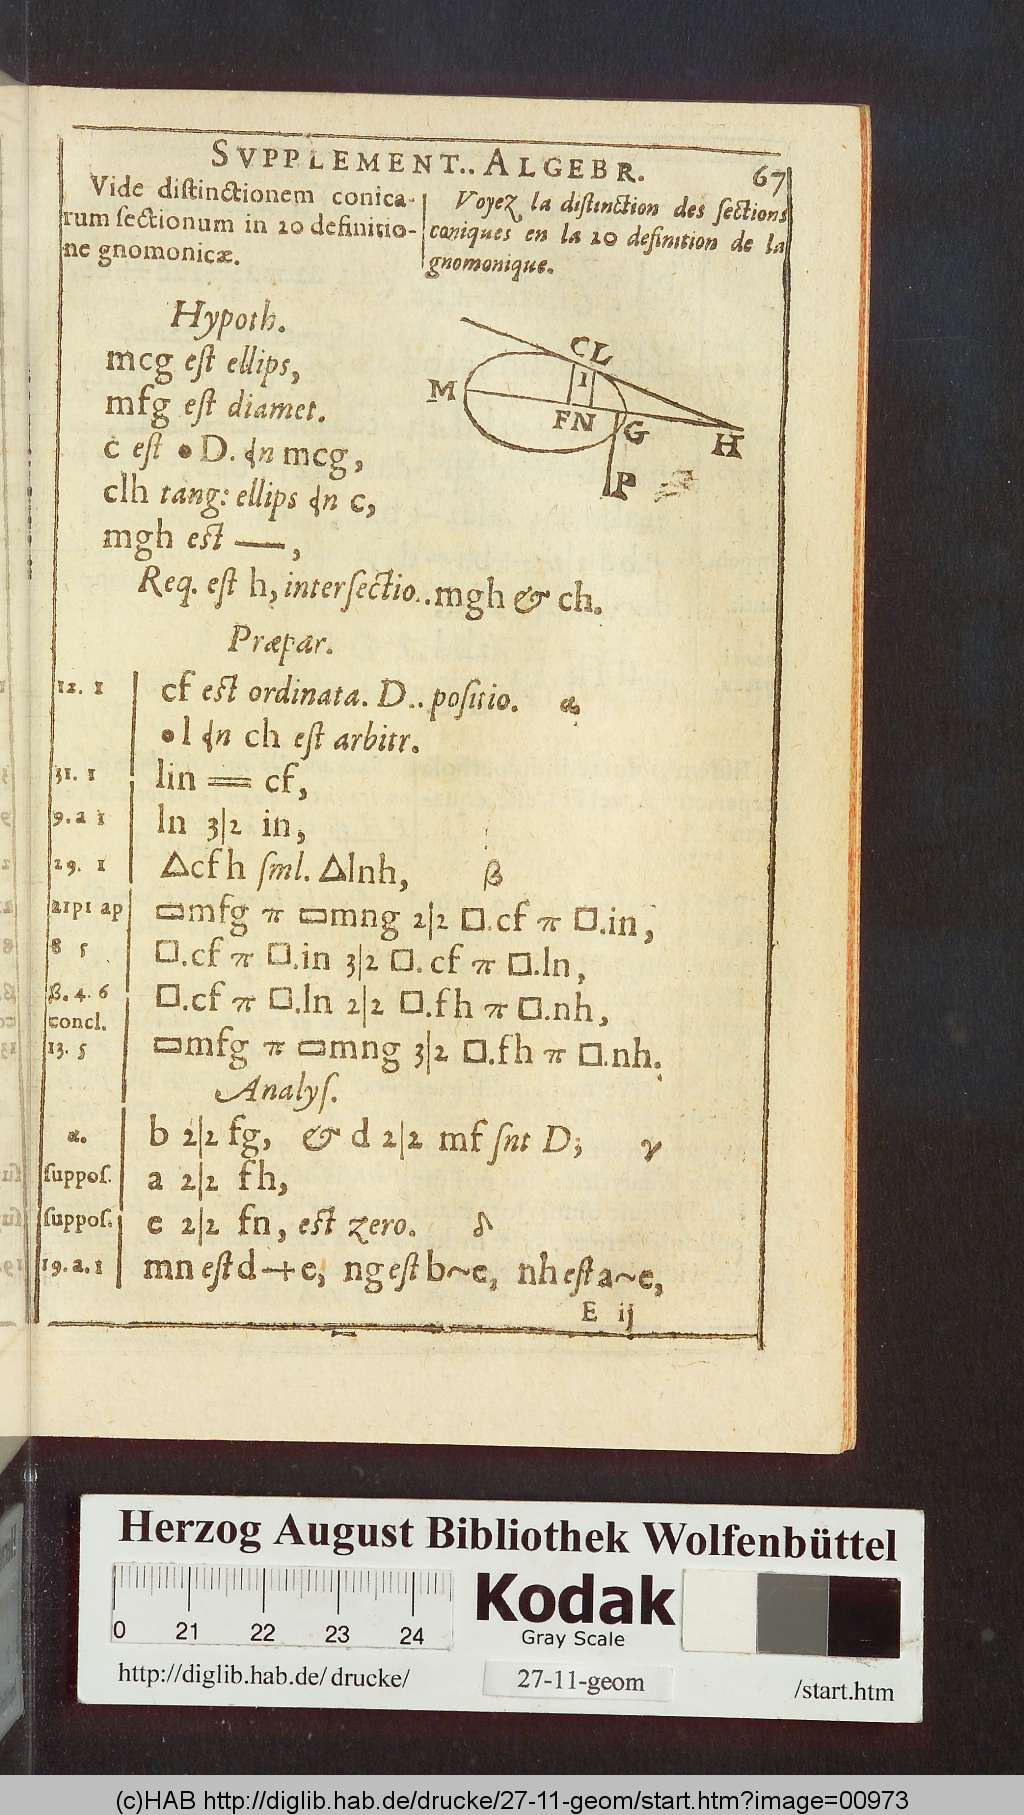 SVPPLEMENT.. ALGEBR. 67
Vide distinctionem conica-
rum sectionum in 20 definitio-
ne gnomonicæ.
Voyez la distinction des sections
coniques en la 20 definition de la
gnomonique.
Hypoth.
mcg est ellips,
mfg est diamet.
c est • D. ɖn mcg,
clh tang: ellips ɖn c,
mgh est —,
Req. est h, intersectio..mgh & ch.
CL
M
I
FN
G
H
P
Præpar.
12. 1 cf est ordinata. D.. positio. α
•l ɖn ch est arbitr.
31. 1 lin == cf,
9. a 1 ln 3|2 in,
29. 1 △cfh sml. △lnh, β
21p1 ap ▭mfg π ▭mng 2|2 □.cf π □.in,
8 5 □.cf π □.in 3|2 □.cf π □.ln,
β. 4. 6 □.cf π □.ln 2|2 □.fh π □.nh,
concl.
13. 5 ▭mfg π ▭mng 3|2 □.fh π □.nh.
Analys.
α. b 2|2 fg, & d 2|2 mf snt D; γ
suppos. a 2|2 fh,
suppos. e 2|2 fn, est zero. δ
19. a. 1 mn est d+e, ng est b~e, nh est a~e,
E ij
Herzog August Bibliothek Wolfenbüttel
0 21 22 23 24
Kodak
Gray Scale
http://diglib.hab.de/drucke/ 27-11-geom /start.htm
(c)HAB http://diglib.hab.de/drucke/27-11-geom/start.htm?image=00973